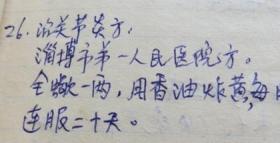 26. 治关节炎方,
淄博市第一人民医院方。
全蝎一两,用香油炸黄,每日
连服二十天。